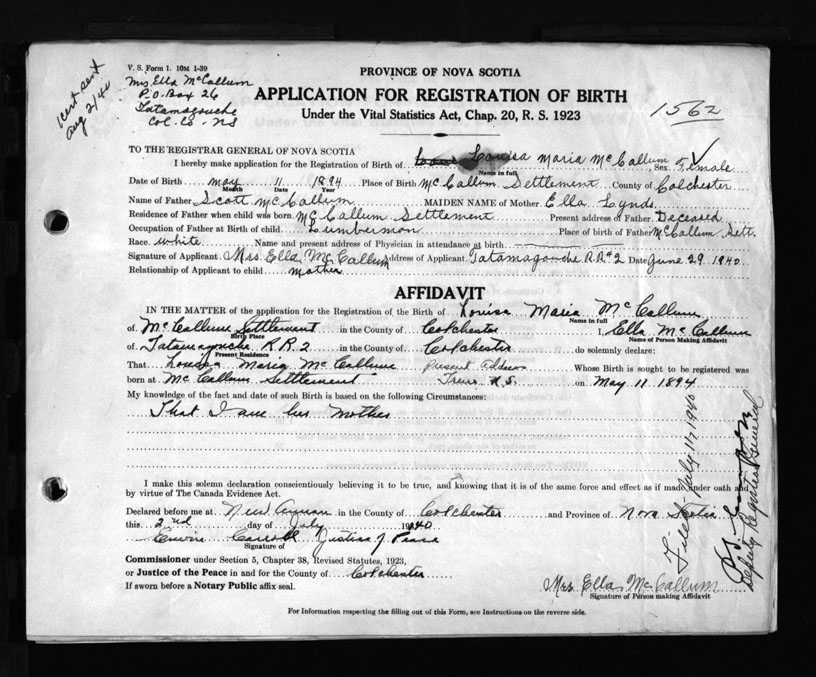 V. S. Form 1. 10M 1-39
Mrs Ella McCallum
P.O. Box 26
Tatamagouche
Col. Co. N S
1 cert sent
Aug 2/40
PROVINCE OF NOVA SCOTIA
APPLICATION FOR REGISTRATION OF BIRTH
Under the Vital Statistics Act, Chap. 20, R. S. 1923
1562
TO THE REGISTRAR GENERAL OF NOVA SCOTIA
I hereby make application for the Registration of Birth of Louisa Maria McCallum Sex Female
Name in full
Date of Birth May 11 1894 Place of Birth McCallum Settlement County of Colchester
Month Date Year
Name of Father Scott McCallum MAIDEN NAME of Mother Ella Lynds
Residence of Father when child was born McCallum Settlement Present address of Father Deceased
Occupation of Father at Birth of child Lumberman Place of birth of Father McCallum Sett.
Race White Name and present address of Physician in attendance at birth
Signature of Applicant Mrs. Ella McCallum Address of Applicant Tatamagouche R.R #2 Date June 29 1940
Relationship of Applicant to child mother
AFFIDAVIT
IN THE MATTER of the application for the Registration of the Birth of Louisa Maria McCallum
Name in full
of McCallum Settlement in the County of Colchester I, Ella McCallum
Birth Place Name of Person Making Affidavit
of Tatamagouche R.R. 2 in the County of Colchester do solemnly declare:
Present Residence
That Louisa Maria McCallum Present Address Whose Birth is sought to be registered was
born at McCallum Settlement Truro N.S. on May 11 1894
My knowledge of the fact and date of such Birth is based on the following Circumstances:
That I am her Mother
I make this solemn declaration conscientiously believing it to be true, and knowing that it is of the same force and effect as if made under oath and
by virtue of The Canada Evidence Act.
Declared before me at New Annan in the County of Colchester and Province of Nova Scotia
this 2nd day of July 1940
Carroll Justice of Peace
Signature of
Commissioner under Section 5, Chapter 38, Revised Statutes, 1923,
or Justice of the Peace in and for the County of Colchester
If sworn before a Notary Public affix seal.
Mrs Ella McCallum
Signature of Person making Affidavit
Filed July 11, 1940
Deputy Registrar General
For Information respecting the filling out of this Form, see Instructions on the reverse side.